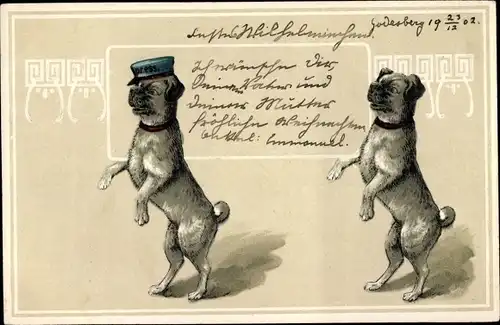 Godesberg 19 23/12 02.
Wilhelminchen!
Ich wünsche dir
deinem Vater und
deiner Mutter
fröhliche Weihnachten
Onkel: Emmanuel.